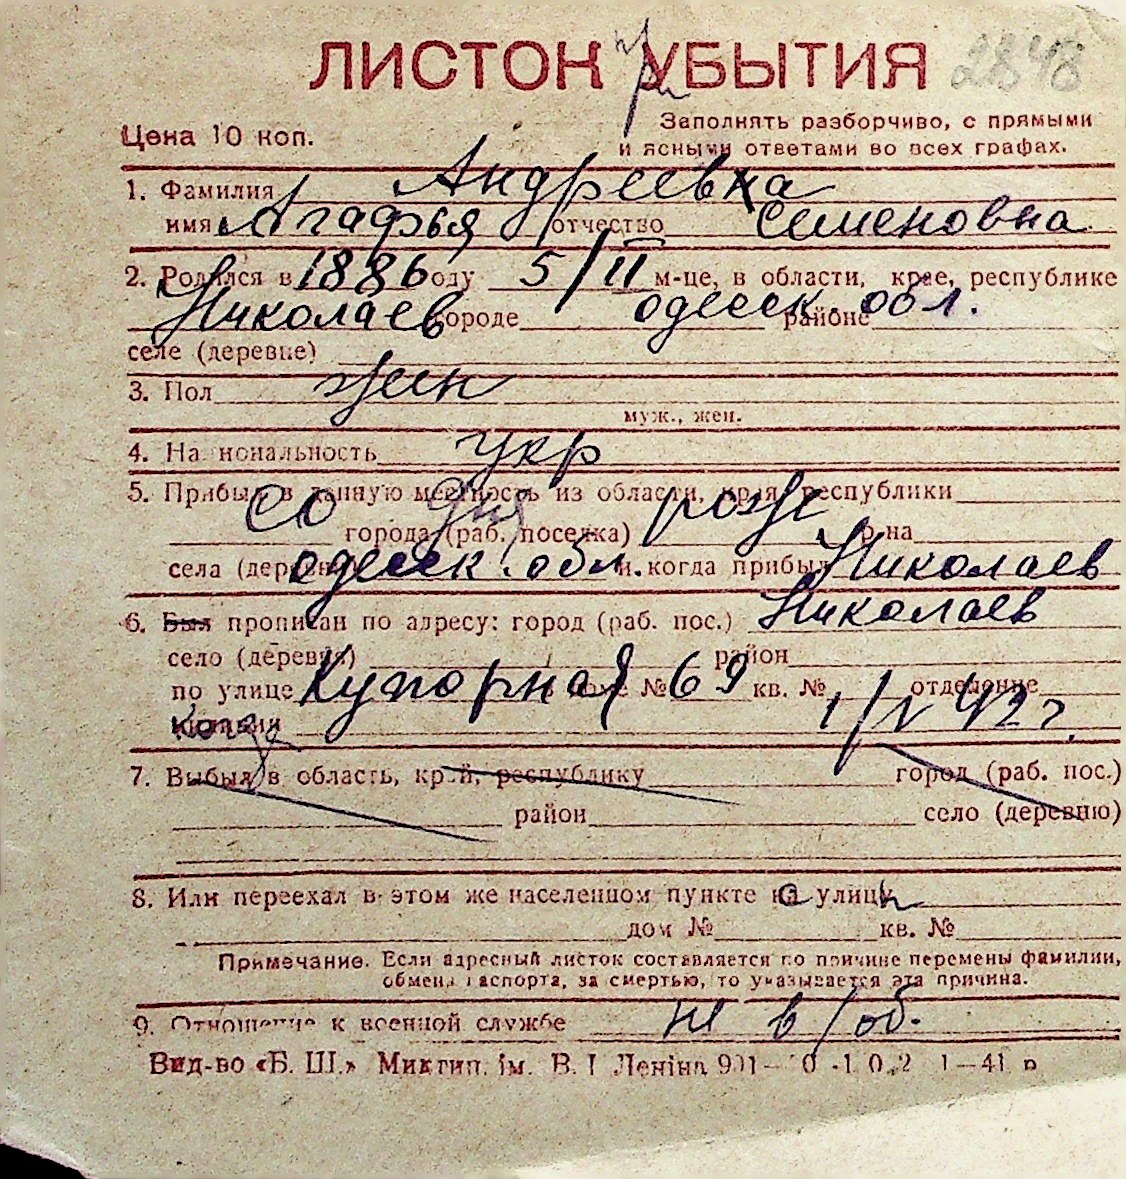 ЛИСТОК УБЫТИЯ 2848
Цена 10 коп.
Заполнять разборчиво, с прямыми
и ясными ответами во всех графах.
1. Фамилия Андреевка
имя Агафья отчество Семеновна
2. Родился в 1886 году 5/II м-це, в области, крае, республике
Николаев городе одесск. обл. районе
селе (деревне)
3. Пол жен
муж., жен.
4. Национальность укр
5. Прибыл в данную местность из области, края, республики
со дня рожд города (раб. поселка) р-на
села (деревни) одесск. обл. и когда прибыл Николаев
6. Был прописан по адресу: город (раб. пос.) Николаев
село (деревня) район
по улице Купорная № 69 кв. № отделение
когда 1/IV 42 г.
7. Выбыл в область, край, республику город (раб. пос.)
район село (деревню)
8. Или переехал в этом же населенном пункте на улицу
дом № кв. №
Примечание. Если адресный листок составляется по причине перемены фамилии,
обмена паспорта, за смертью, то указывается эта причина.
9. Отношение к военной службе не в/об.
Вид-во «Б. Ш.» Миктип. ім. В. І Леніна